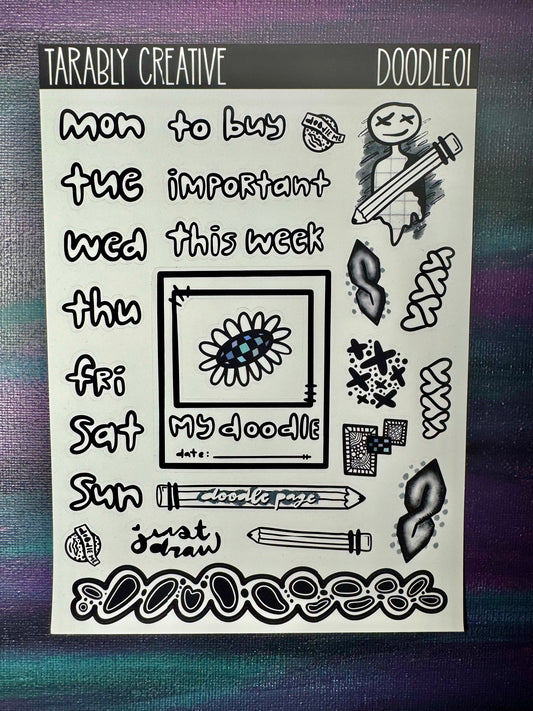 TARABLY CREATIVE DOODLE01
mon to buy doodle me
tue important
wed this week
thu
fri
sat my doodle
date:
sun doodle page
doodle me just
draw